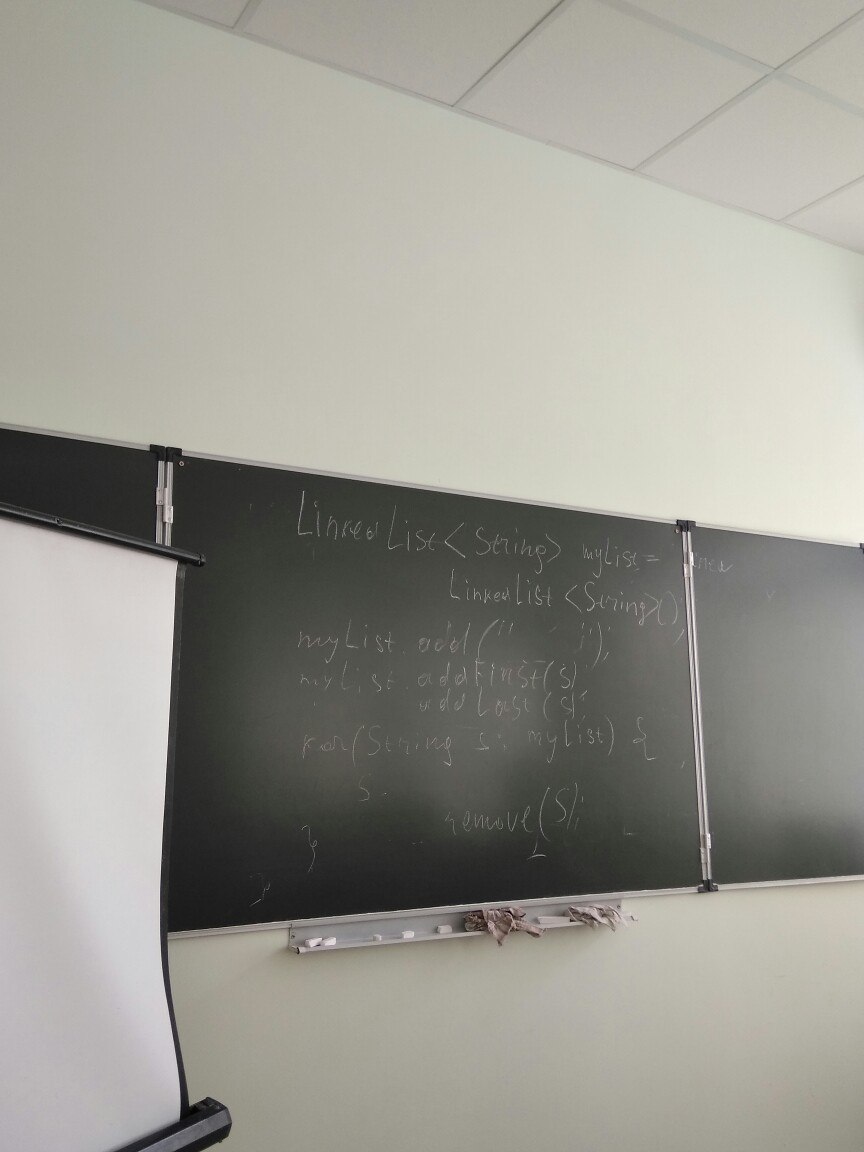 LinkedList<String> myList = new
LinkedList <String>();
myList.add(" ");
myList.addFirst(s);
addLast(s);
for(String s: myList) {
s.
remove(S);
}
}